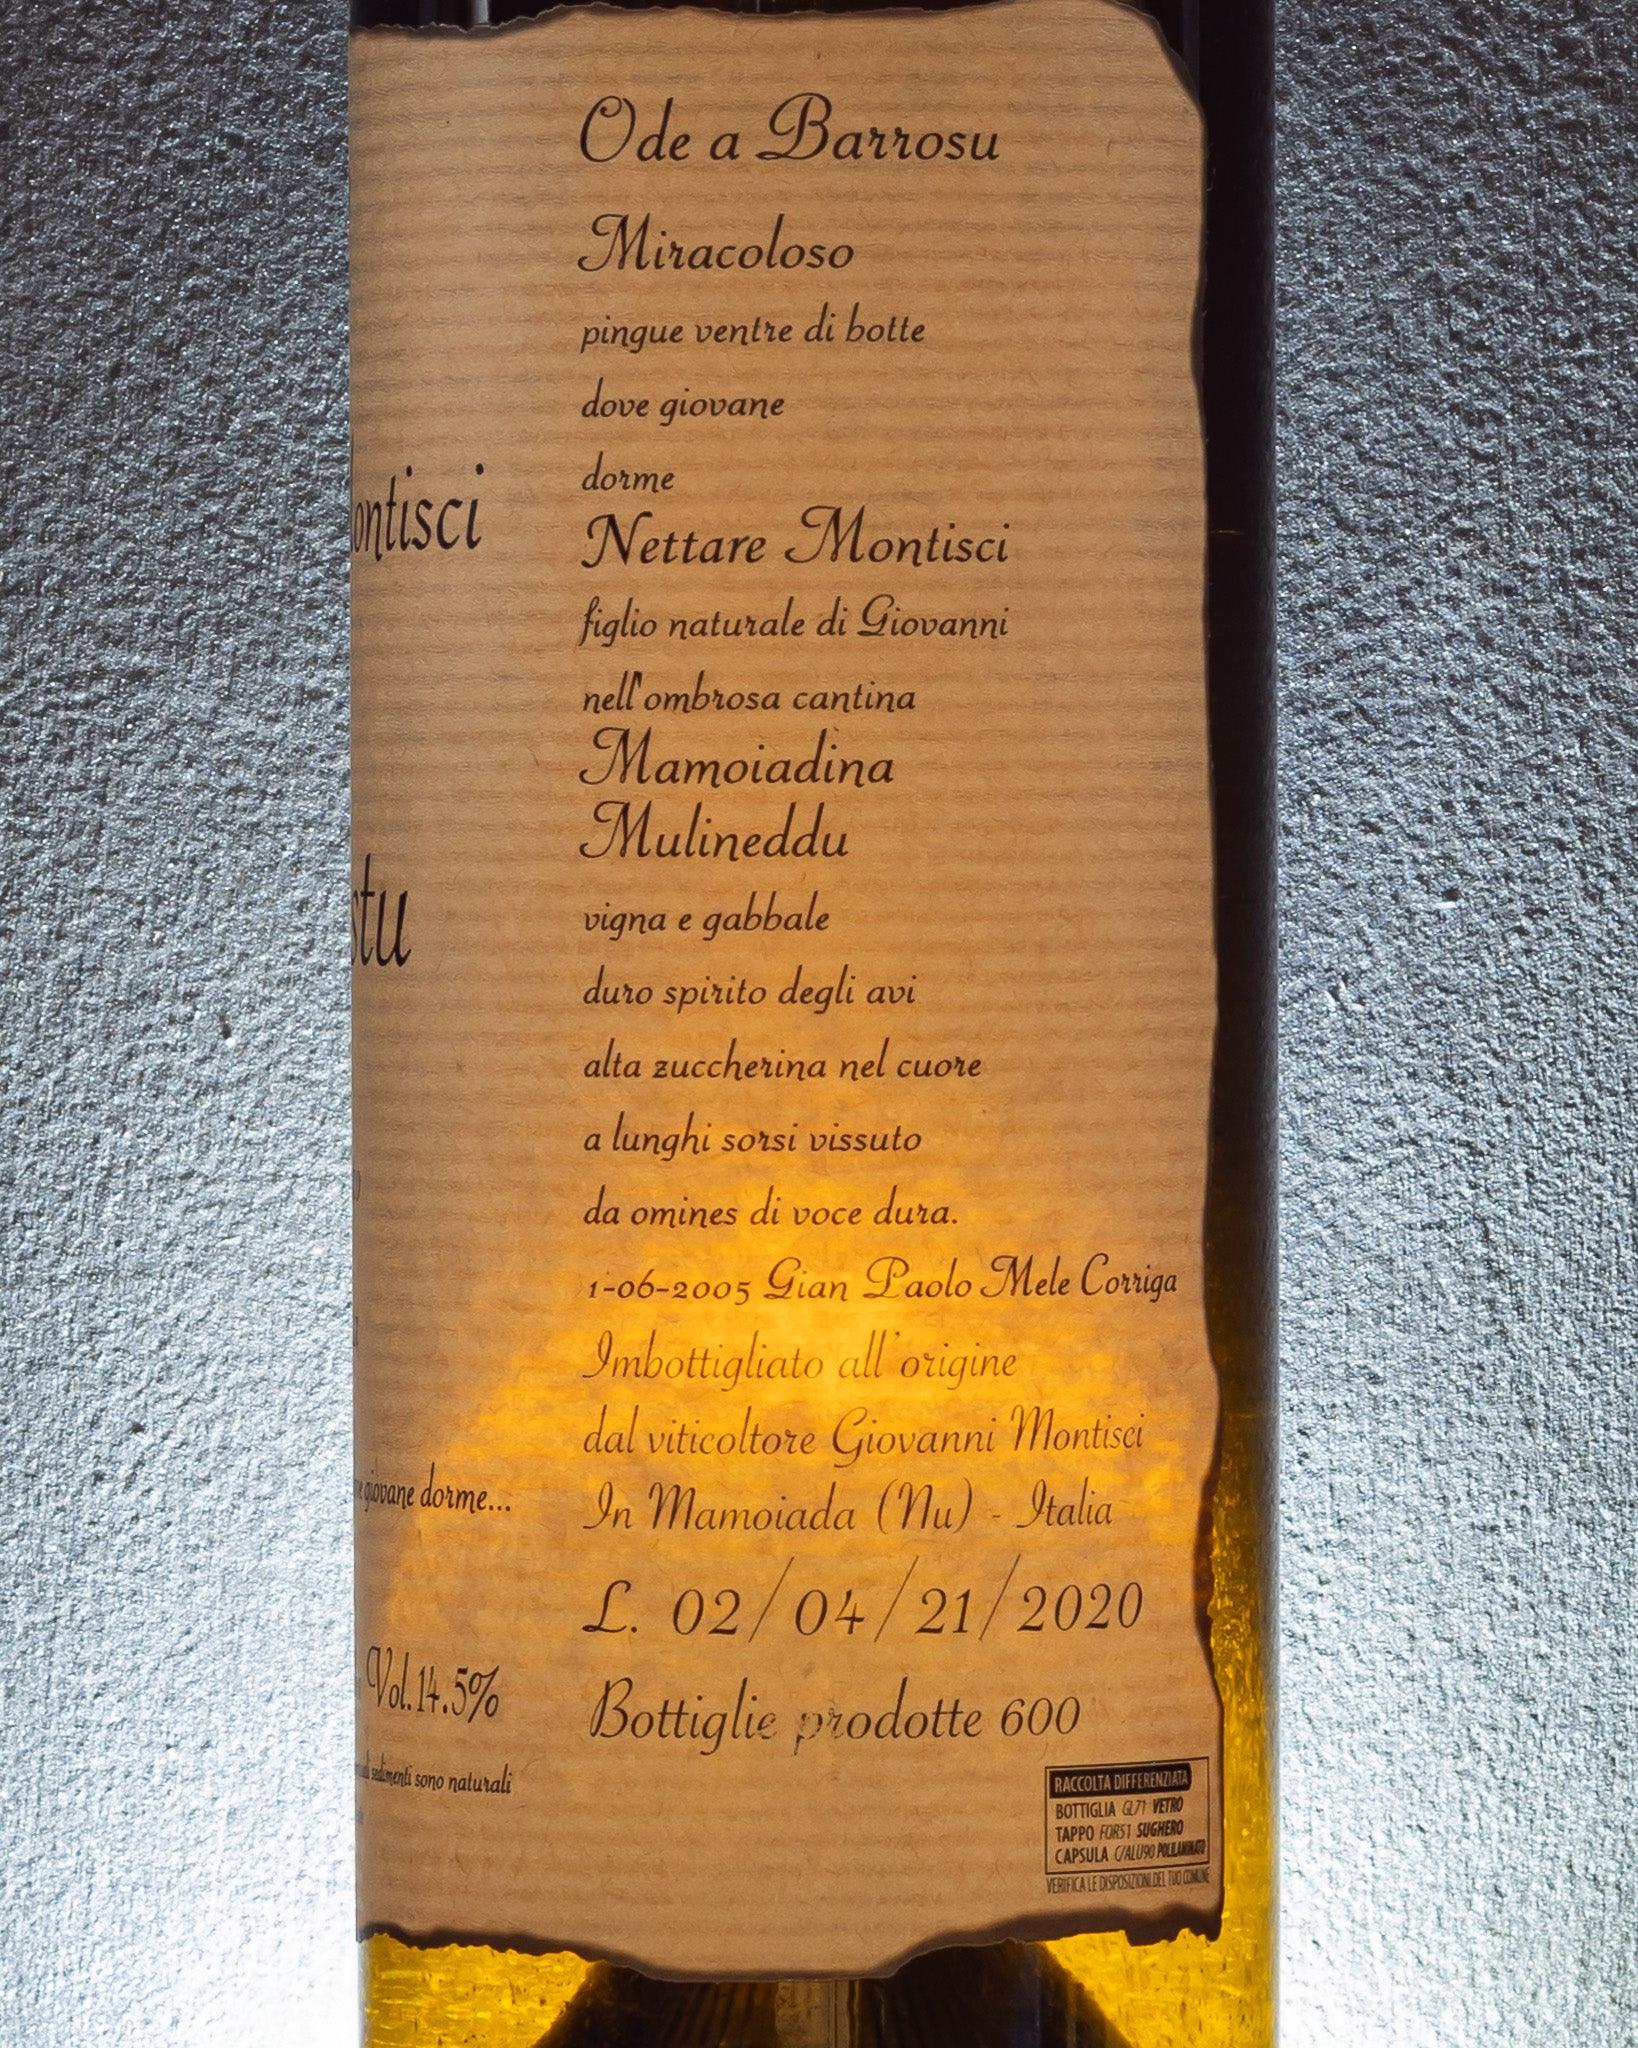 Ode a Barrosu
Miracoloso
pingue ventre di botte
dove giovane
dorme
Nettare Montisci
figlio naturale di Giovanni
nell'ombrosa cantina
Mamoiadina
Mulineddu
vigna e gabbale
duro spirito degli avi
alta zuccherina nel cuore
a lunghi sorsi vissuto
da omines di voce dura.
1-06-2005 Gian Paolo Mele Corriga
Imbottigliato all'origine
dal viticoltore Giovanni Montisci
In Mamoiada (Nu) - Italia
L. 02/04/21/2020
Bottiglie prodotte 600
RACCOLTA DIFFERENZIATA
BOTTIGLIA GL71 VETRO
TAPPO FOR51 SUGHERO
CAPSULA C/ALU90 POLILAMINATO
VERIFICA LE DISPOSIZIONI DEL TUO COMUNE
ontisci
stu
giovane dorme...
Vol.14.5%
sedimenti sono naturali